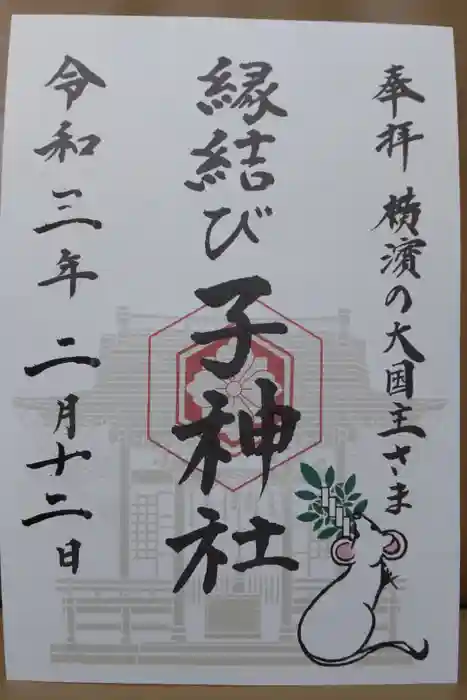 奉拝 横濱の大国主さま
縁結び子神社
令和三年 二月十二日